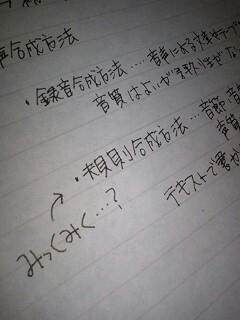 声合成方法
・録音合成方法……音声による
音質はよいが柔軟性がな
・規則合成方法…音節、音
音質
テキストで書か
みっくみく…?